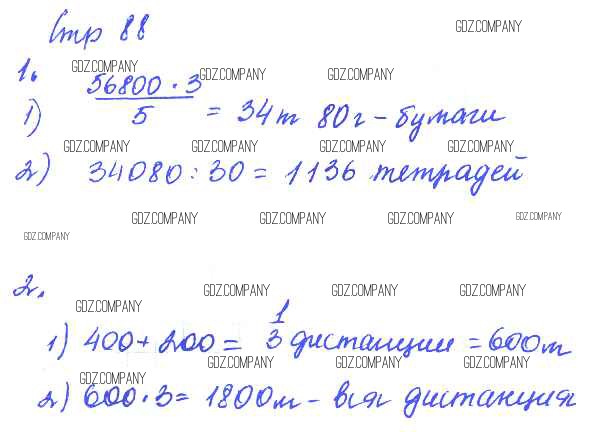 Стр 88
GDZ.COMPANY
1. GDZ.COMPANY GDZ.COMPANY GDZ.COMPANY
1) 56800 · 3 / 5 = 34т 80г - бумаги
GDZ.COMPANY GDZ.COMPANY GDZ.COMPANY GDZ.COMPANY
2) 34080 : 30 = 1136 тетрадей
GDZ.COMPANY GDZ.COMPANY GDZ.COMPANY GDZ.COMPANY
GDZ.COMPANY
2. GDZ.COMPANY GDZ.COMPANY GDZ.COMPANY
GDZ.COMPANY
1) 400 + 200 = 1/3 дистанции = 600м
GDZ.COMPANY GDZ.COMPANY GDZ.COMPANY
GDZ.COMPANY
2) 600 · 3 = 1800м - вся дистанция